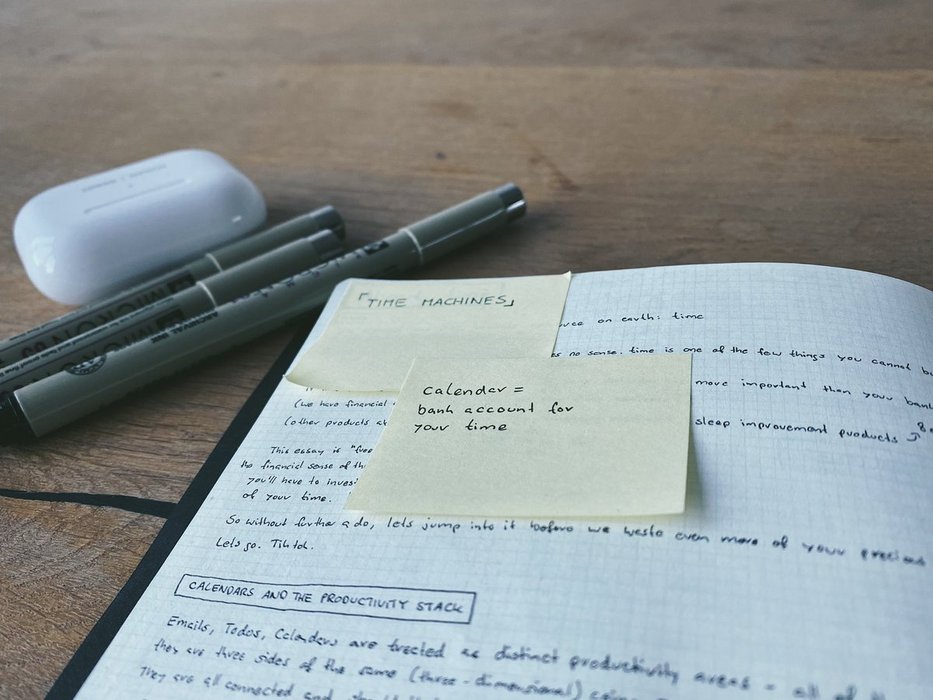 「TIME MACHINES」
calendar =
bank account for
your time
on earth: time
no sense. time is one of the few things you cannot
more important than your bank
(we have financial
sleep improvement products
(other products
This essay is "free
the financial sense of
you'll have to
of your time.
So without further ado, lets jump into it before we waste even more of your precious
Lets go. Tik tok.
CALENDARS AND THE PRODUCTIVITY STACK
Emails, Todos, Calendars are treated as distinct productivity areas - all of
they are three sides of the same (three-dimensional)
They are all connected and
MICRON
ARCHIVAL INK